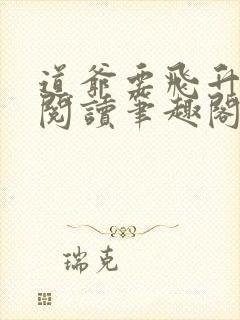 道爺要飛升
閱讀筆趣閣
瑞克